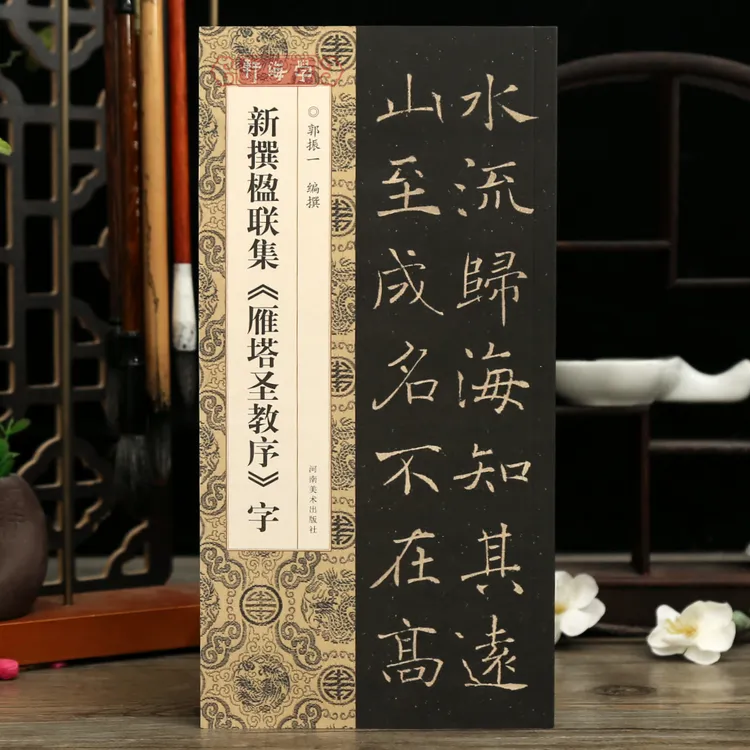 軒海学
◎郭振一 编撰
新撰楹联集《雁塔圣教序》字
河南美术出版社
水流歸海知其遠
山至成名不在高